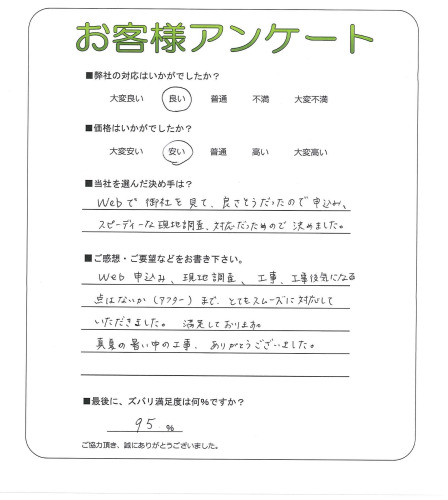 お客様アンケート
■弊社の対応はいかがでしたか?
大変良い 良い 普通 不満 大変不満
■価格はいかがでしたか?
大変安い 安い 普通 高い 大変高い
■当社を選んだ決め手は?
Webで御社を見て、良さそうだったので申込み、
スピーディーな現地調査、対応だったためので決めました。
■ご感想・ご要望などをお書き下さい。
Web申込み、現地調査、工事、工事後気になる
点はないか(アフター)まで、とてもスムーズに対応して
いただきました。満足しております。
真夏の暑い中の工事、ありがとうございました。
■最後に、ズバリ満足度は何%ですか?
95 %
ご協力頂き、誠にありがとうございました。